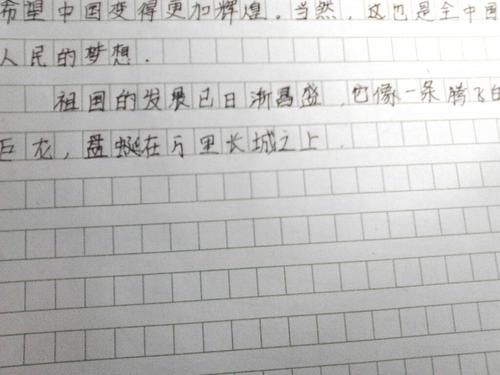 希望中国变得更加辉煌。当然，这也是全中国
人民的梦想.
祖国的发展已日渐昌盛,它像一条腾飞的
巨龙，盘蜒在万里长城之上.